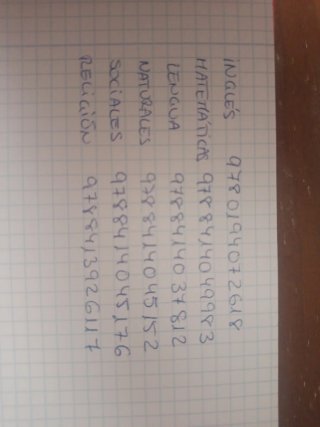 INGLÉS 9780194072618
MATEMÁTICAS 9788414049983
LENGUA 9788414037812
NATURALES 9788414045152
SOCIALES 9788414045176
RELIGIÓN 9788413926117